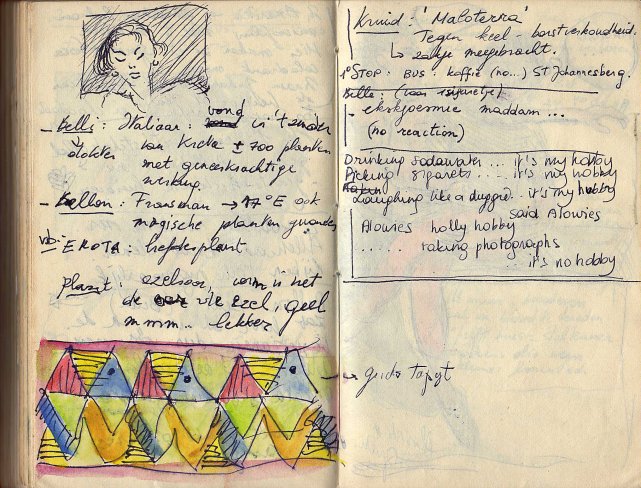 vond
- Belli: Italiaan: in 't zuiden
dokter van Kreta ± 700 planten
met geneeskrachtige
werking.
- Bellon: Fransman → 17°E ook
magische planten
vb: EROTA: liefdesplant
plant: ezelsoor, vorm is het
de vile ezel, geel
mmm.. lekker
Kruid: 'Maloterra'
Tegen keel - borstverkoudheid.
↳ zakje meegebracht.
1° STOP: BUS: koffie (no...) ST Johannesberg.
Belle: (van sigaretje)
- ekskjoesmie maddam ...
(no reaction)
Drinking sodawater ... it's my hobby
Picking sigarets ... it's my hobby
Laughing like a duggie.. it's my hobby
said Alowies
Alowies holly hobby
...... taking photographs
... it's no hobby
→ tapyt